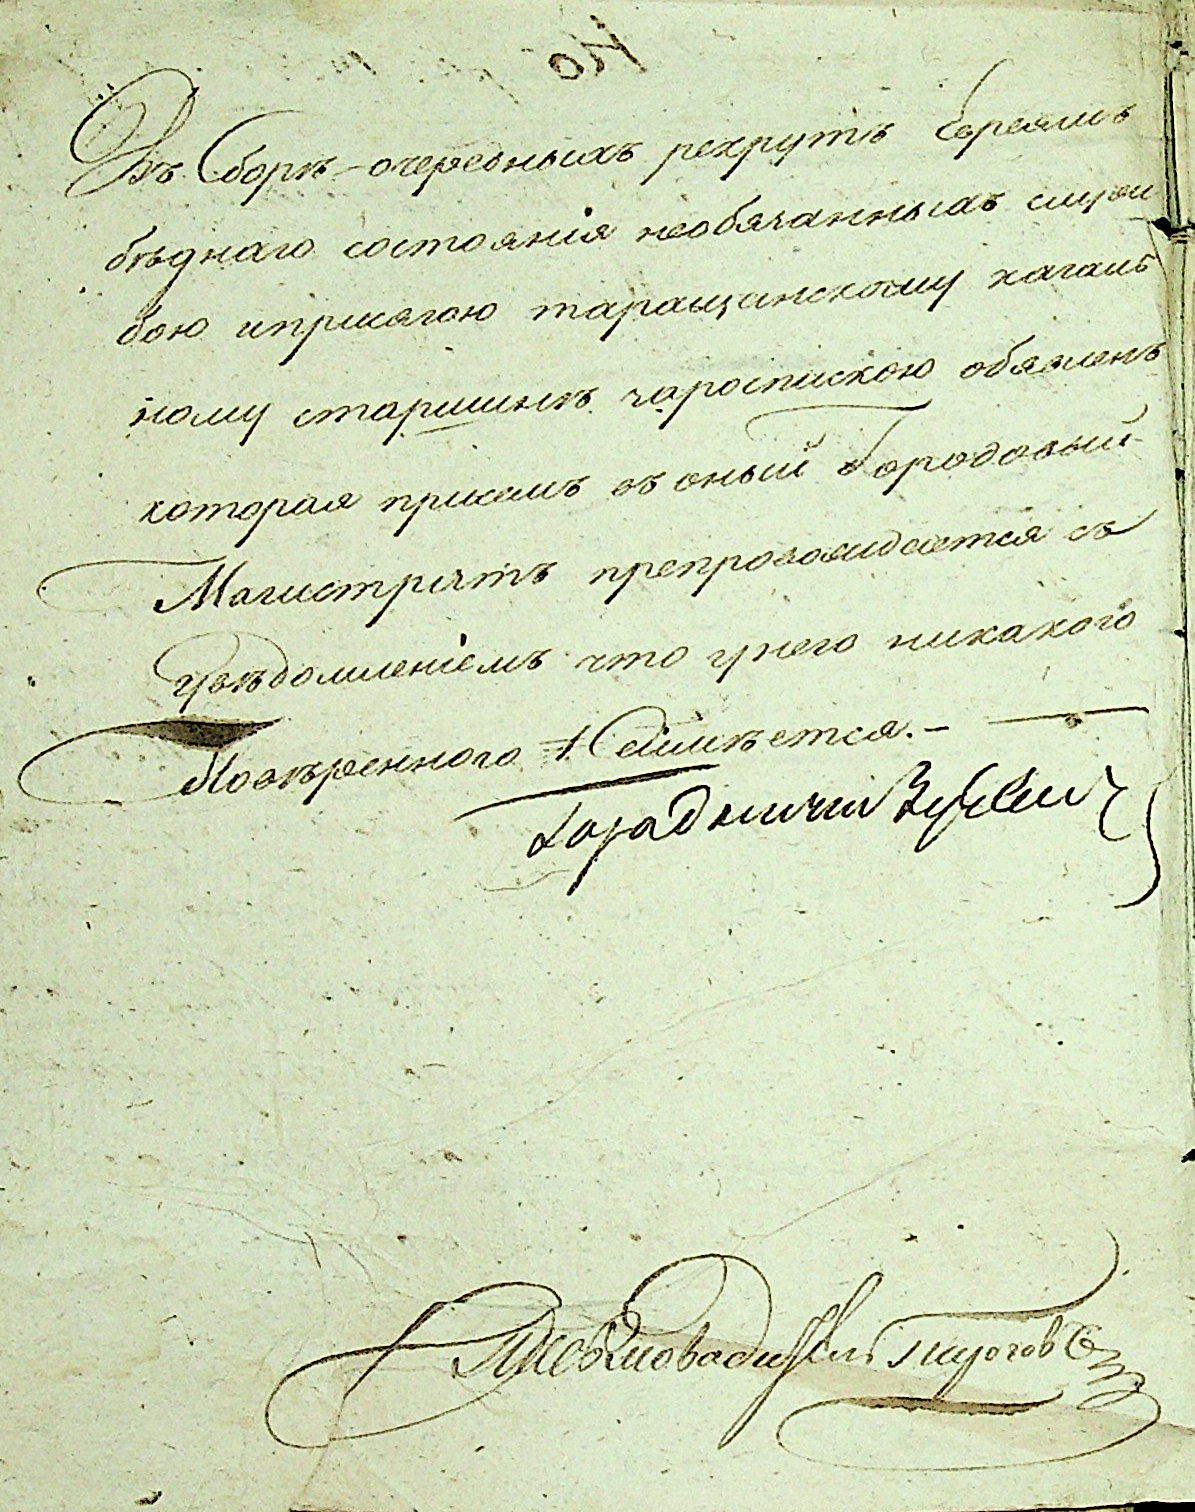 Въ Сборѣ очередныхъ рекрутъ Евреямъ
бѣднаго состоянія необязанныхъ служ
бою иприсягою таращанскому кагаль
ному старшинѣ. чароспискою обявленъ
которая присемъ въ оный Городовый
Магистратъ препровождается съ
увѣдомленіемъ что унего никакого
Повѣреннаго Неимѣется.-
Городничій
Писмоводитель Пироговъ